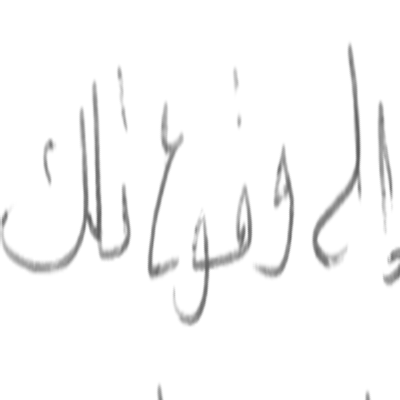 إلى وقوع تلك